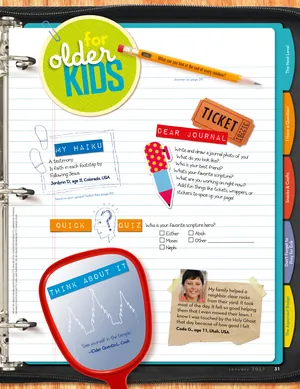 for
older
KIDS
What can you find at the end of every rainbow?
Answer on page 27!
TICKET
MY HAIKU
A testimony
Is Faith in each footstep by
Following Jesus
Jordann D., age 11, Colorado, USA
DEAR JOURNAL
Write and draw a journal photo of you!
What do you look like?
Who is your best friend?
What's your favorite scripture?
What are you working on right now?
Add fun things like tickets, wrappers, or
stickers to spice up your page!
QUICK QUIZ
Who is your favorite scripture hero?
Esther
Moses
Nephi
Abish
Other
THINK ABOUT IT
"See yourself in the temple."
—Elder Quentin L. Cook
My family helped a
neighbor clear rocks
from their yard. It took
most of the day. It felt so good helping
them that I even missed their lawn. I
know I was touched by the Holy Ghost
that day because of how good I felt.
Cade G., age 11, Utah, USA
The Next Level
Have a Question?
Snacks & Crafts
Don't Forget to
Pray for Bob
January 2017 31